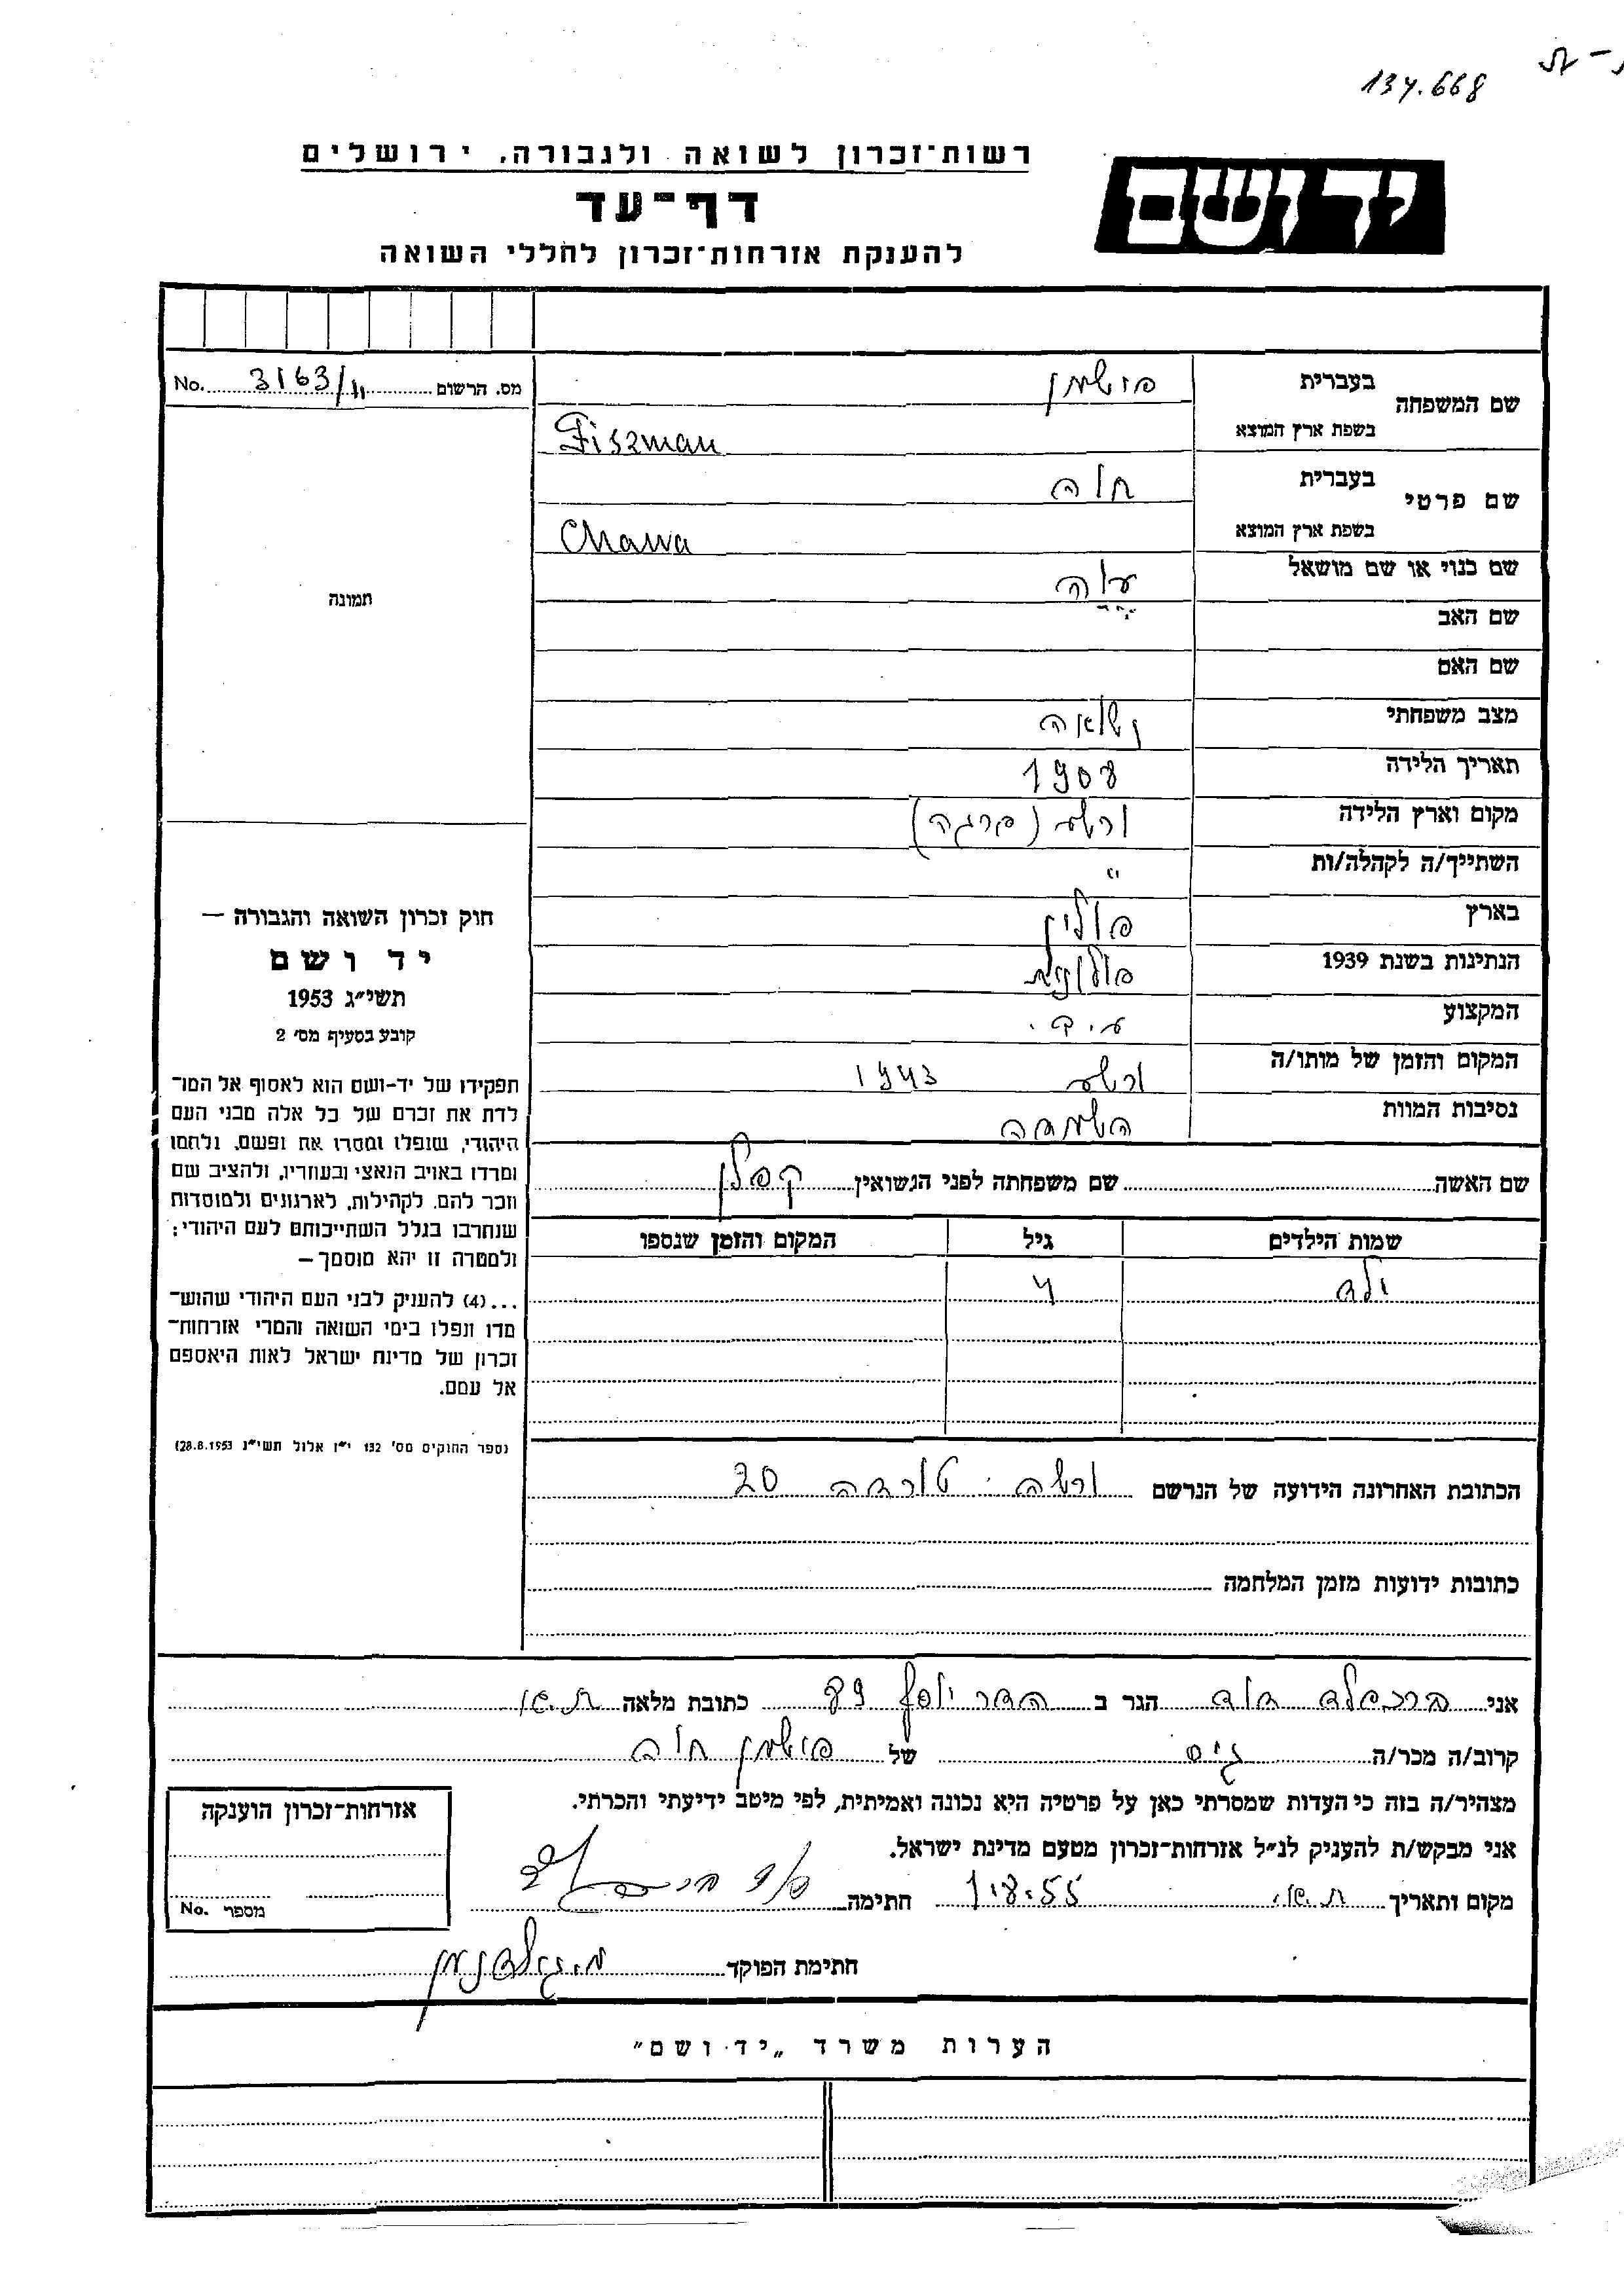 134.668
רשות־זכרון לשואה ולגבורה, ירושלים
יד ושם
דף־עד
להענקת אזרחות־זכרון לחללי השואה
מס. הרשום 3163/11 No.
שם המשפחה בעברית פישמן
בשפת ארץ המוצא Fiszman
שם פרטי בעברית חוה
בשפת ארץ המוצא Chawa
שם כנוי או שם מושאל
שם האב
שם האם
מצב משפחתי נשואה
תאריך הלידה 1908
מקום וארץ הלידה ורשה (פרגה)
השתייך/ה לקהלה/ות "
בארץ פולין
הנתינות בשנת 1939 פולונית
המקצוע
המקום והזמן של מותו/ה ורשה 1943
נסיבות המוות השמדה
תמונה
חוק זכרון השואה והגבורה —
יד ושם
תשי״ג 1953
קובע בסעיף מס׳ 2
תפקידו של יד-ושם הוא לאסוף אל המו־
לדת את זכרם של כל אלה מבני העם
היהודי, שנפלו ומסרו את נפשם, נלחמו
ומרדו באויב הנאצי ובעוזריו, ולהציב שם
וזכר להם, לקהילות, לארגונים ולמוסדות
שנחרבו בגלל השתייכותם לעם היהודי;
ולמטרה זו יהא מוסמך —
...(4) להעניק לבני העם היהודי שהוש־
מדו ונפלו בימי השואה והמרי אזרחות־
זכרון של מדינת ישראל לאות היאספם
אל עמם.
(ספר החוקים מס׳ 132 י״ז אלול תשי״ג 28.8.1953)
שם האשה שם משפחתה לפני הנשואין קפלן
שמות הילדים גיל המקום והזמן שנספו
ילד 4
הכתובת האחרונה הידועה של הנרשם ורשה 20
כתובות ידועות מזמן המלחמה
אני דוד הגר ב הדר יוסף כתובת מלאה ת.א.
קרוב/ה מכר/ה גיס של פישמן חוה
מצהיר/ה בזה כי העדות שמסרתי כאן על פרטיה היא נכונה ואמיתית, לפי מיטב ידיעתי והכרתי.
אני מבקש/ת להעניק לנ״ל אזרחות־זכרון מטעם מדינת ישראל.
מקום ותאריך ת.א. 1.8.55 חתימה
חתימת הפוקד
אזרחות־זכרון הוענקה
מספר No.
הערות משרד „יד ושם״